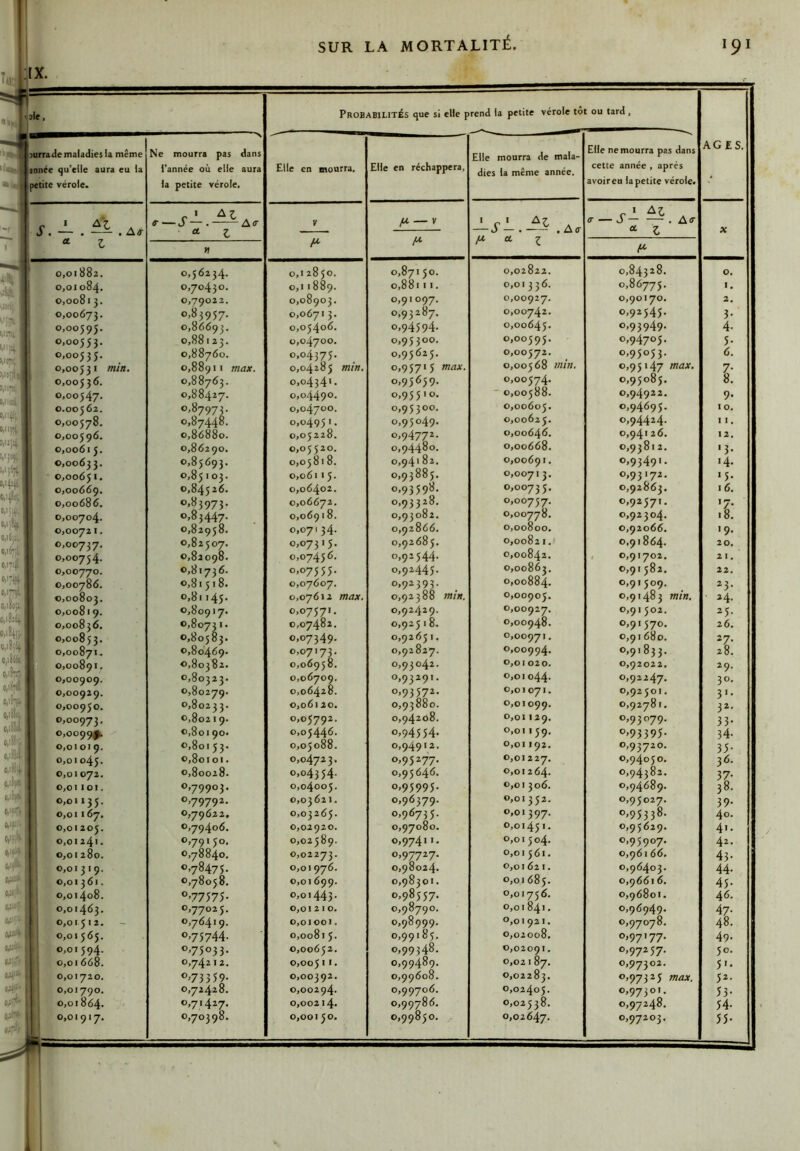 SUR LA MORTALITÉ. 191
IX.
Probabilités que si elle prend la petite vérole tôt ou tard,
ourra de maladies la même année qu'elle aura eu la petite vérole.
Ne mourra pas dans l'année où elle aura la petite vérole.
Elle en mourra,
Elle en réchappera,
Elle mourra de maladies la même année.
Elle ne mourra pas dans cette année, après avoir eu la petite vérole.
AGES.
x
0,01882. 0,56234. 0,12850. 0,87150. 0,02822. 0,84328. 0.
0,01084. 0,70430. 0,11889. 0,88111. 0,01336. 0,86775. 1.
0,00813. 0,79022. 0,08903. 0,91097. 0,00927. 0,90170. 2.
0,00673. 0,83957. 0,06713. 0,93287. 0,00742. 0,92545. 3.
0,00595. 0,86693. 0,05406. 0,94594. 0,00645. 0,93949. 4.
0,00553. 0,88123. 0,04700. 0,95300. 0,00595. 0,94705. 5.
0,00535. 0,88760. 0,04375. 0,95625. 0,00572. 0,95053. 6.
0,00531 min. 0,88911 max. 0,04285 min. 0,95715 max. 0,00568 min. 0,95147 max. 7.
0,00536. 0,88763. 0,04341. 0,95659. 0,00574. 0,95085. 8.
0,00547. 0,88427. 0,04490. 0,95510. 0,00588. 0,94922. 9.
0.00562. 0,87973. 0,04700. 0,95300. 0,00605. 0,94695. 10.
0,00578. 0,87448. 0,04951. 0,95049. 0,00625. 0,94424. 11.
0,00596. 0,86880. 0,05228. 0,94772. 0,00646. 0,94126. 12.
0,00615. 0,86290. 0,05520. 0,94480. 0,00668. 0,93812. 13.
0,00633. 0,85693. 0,05818. 0,94182. 0,00691. 0,93491. 14.
0,00651. 0,85103. 0,06115. 0,93885. 0,00713. 0,93172. 15.
0,00669. 0,84526. 0,06402. 0,93598. 0,00735. 0,92863. 16.
0,00686. 0,83973. 0,06672. 0,93328. 0,00757. 0,92571. 17.
0,00704. 0,83447. 0,06918. 0,93082. 0,00778. 0,92304. 18.
0,00721. 0,82958. 0,07134. 0,92866. 0,00800. 0,92066. 19.
0,00737. 0,82507. 0,07315. 0,92685. 0,00821. 0,91864. 20.
0,00754. 0,82098. 0,07456. 0,92544. 0,00842. 0,91702. 21.
0,00770. 0,81736. 0,07555. 0,92445. 0,00863. 0,91582. 22.
0,00786. 0,81518. 0,07607. 0,92393. 0,00884. 0,91509. 23.
0,00803. 0,81145. 0,07612 max. 0,92388 min. 0,00905. 0,91483 min. 24.
0,00819. 0,80917. 0,07571. 0,92429. 0,00927. 0,91502. 25.
0,00836. 0,80731. 0,07482. 0,92518. 0,00948. 0,91570. 26.
0,00853. 0,80583. 0,07349. 0,92651. 0,00971. 0,91680. 27.
0,00871. 0,80469. 0,07173. 0,92827. 0,00994. 0,91833. 28.
0,00891. 0,80382. 0,06958. 0,93042. 0,01020. 0,92022. 29.
0,00909. 0,80323. 0,06709. 0,93291. 0,01044. 0,92247. 30.
0,00929. 0,80279. 0,06428. 0,93572. 0,01071. 0,92501. 31.
0,00950. 0,80233. 0,06120. 0,93880. 0,01099. 0,92781. 32.
0,00973. 0,80219. 0,05792. 0,94208. 0,01129. 0,93079. 33.
0,80190. 0,05446. 0,94554. 0,01159. 0,93395. 34.
0,01019. 0,80153. 0,05088. 0,94912. 0,01192. 0,93720. 35.
0,01045. 0,80101. 0,04723. 0,95277. 0,01227. 0,94050. 36.
0,01072. 0,80028. 0,04354. 0,95646. 0,01264. 0,94382. 37.
0,01101. 0,79903. 0,04005. 0,95995. 0,01306. 0,94689. 38.
0,01135. 0,79792. 0,03621. 0,96379. 0,01352. 0,95027. 39.
0,01167. 0,79622. 0,03265. 0,96735. 0,01397. 0,95338. 40.
0,01205. 0,79406. 0,02920. 0,97080. 0,01451. 0,95629. 41.
0,01241. 0,79150. 0,02589. 0,97411. 0,01504. 0,95907. 42.
0,01280. 0,78840. 0,02273. 0,97727. 0,01561. 0,96166. 43.
0,01319. 0,78475. 0,01976. 0,98024. 0,01621. 0,96403. 44.
0,01361. 0,78058. 0,01699. 0,98301. 0,01685. 0,96616. 45.
0,01408. 0,77575. 0,01443. 0,98557. 0,01756. 0,96801. 46.
0,01463. 0,77025. 0,01210. 0,98790. 0,01841. 0,96949. 47.
0,01512. 0,76419. 0,01001. 0,98999. 0,01921. 0,97078. 48.
0,01565. 0,75744. 0,00815. 0,99185. 0,02008. 0,97177. 49.
0,01594. 0,75033. 0,00652. 0,99348. 0,02091. 0,97257. 50.
0,01668. 0,74212. 0,00511. 0,99489. 0,02187. 0,97302. 51.
0,01720. 0,73359. 0,00392. 0,99608. 0,02283. 0,97325 max. 52.
0,01790. 0,72428. 0,00294. 0,99706. 0,02405. 0,97301. 53.
0,01864. 0,71427. 0,00214. 0,99786. 0,02538. 0,97248. 54.
0,01917. 0,70398. 0,00150. 0,99850. 0,02647. 0,97203. 55.